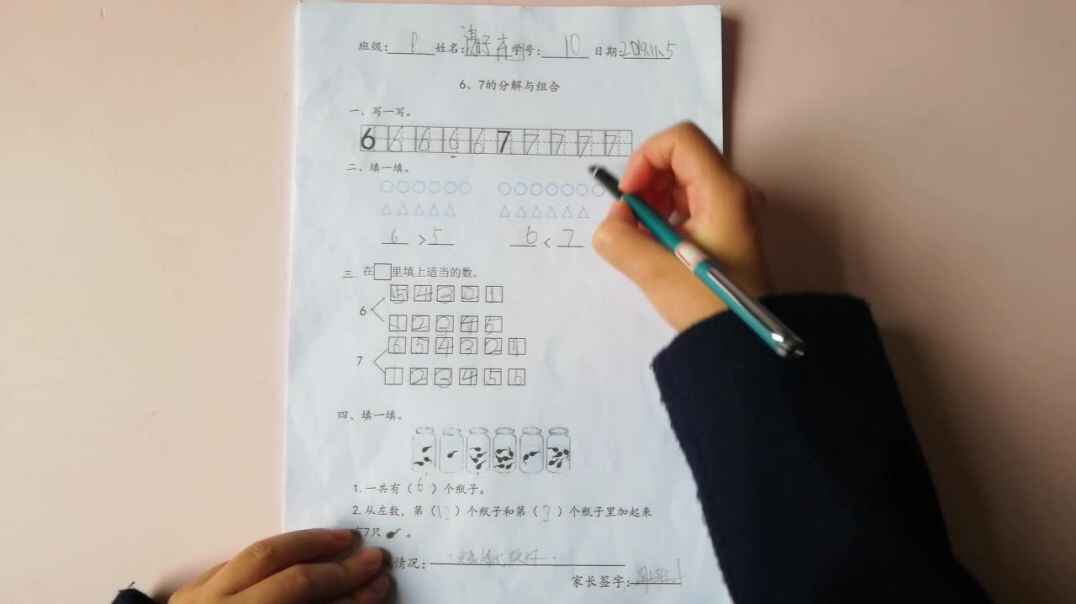 班级: 8 姓名: 学号: 10 日期:
6、7的分解与组合
一、写一写。
6 6 6 6 6 7 7 7 7 7
二、填一填。
6 >5 6 < 7
三.在 里填上适当的数。
5 4 3 2 1
6
1 2 3 4 5
6 5 4 3 2 1
7
1 2 3 4 5 6
四、填一填。
1.一共有(6)个瓶子。
2.从左数，第( )个瓶子和第( )个瓶子里加起来
7只 。
情况:
家长签字: